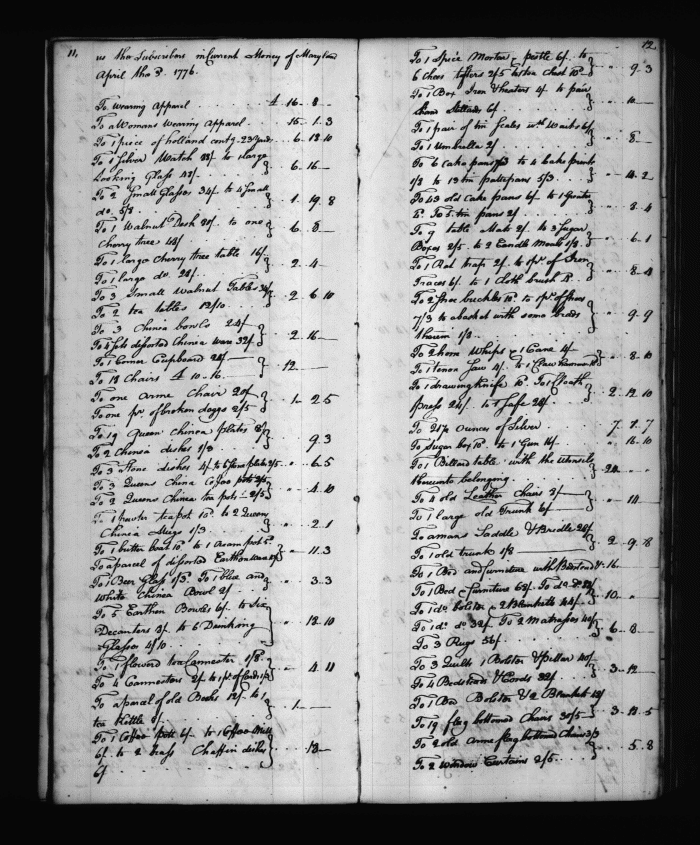 11.
us the Subscribers in Current Money of Maryland
April the 3. 1776.
To Wearing Apparel £ 16 - 8 -
To a Womans Wearing Apparel 15 - 1 - 3
To 1 piece of holland contg. 6 - 13 10
To 1 Silver Watch to 1 large
Looking Glass } 6 - 16 -
To 2 Small Glasses 34/. to 4 Small
do. } 1 - 19 - 8
To 1 Walnut Desk to one
Cherry tree } 6 - 8 -
To 1 large Cherry tree table 16/.
To 1 large do. } 2 - 4 -
To 3 Small Walnut Tables
To 2 tea tables 12/10 } 2 - 6 10
To 3 Chinea bowls 24/.
To 4 Sets disported Chinea ware 32/. } 2 - 16 -
To 1 Corner Cupboard
To 18 Chairs £ 10 - 16 } 12 -
To one Arme Chair 20/.
To one pr. of broken doggs 2/5 } 1 - 2 5
To 19 Queen Chinea plates 8/.
To 2 Chinea dishes 1/3 } 9 3
To 3 Stone dishes 4/. to 6 Stone plates } 6.5
To 3 Queens China Coffee pots
To 2 Queens Chinea tea pots 2/5 } 4 10
To 1 pewter teapot to 2 Queen
Chinea Mugs 1/3 } 2.1
To 1 butter boat to 1 cream pot
To a parcel of disported Earthen Ware } 11.3
To 1 Beer Glass 1/3. To 1 blue and
White Chinea Bowl 2/. } 3.3
To 5 Earthen Bowls 6/. to Six
Decanters to 6 Drinking
Glasses 4/10 } 13 - 10
To 1 flowerd tea Cannester 1/8.
To 4 Cannesters 2/. to } 4 11
To a parcel of old Books 12/. to 1
tea Kettle 8/. } 1 -
To 1 Coffee pott 6/. to 1 Coffee Mill
6/. to 2 brass Chaffin dishes
6/. } 18 -
12
To 1 Spice Mortar & pestle 6/. to
6 Chees tasters 2/5 to } 9 - 3
To 1 Box Iron & heaters 4/. to pair
Stillards 6/. } 10 -
To 1 pair of tin Scales with Waits 6/.
To 1 Umbrella 2/. } 8 -
To 6 Cake pans to 4 Cake prints
1/3 to 13 tin pattepans 5/3 } 14 - 2
To 43 old Cake pans 6/. to 1 Grater
To 5 tin pans 2/. } 8 4
To 9 table Mats 2/. to 3 Sugar
Boxes 2/5 to 2 Candle Moulds 1/8 } 6 . 1
To 1 Rat trap 2/. to 1 pr. of Iron
Traces 6/. to 1 Cloth brush } 8 4
To 2 Shoe buckles to 1 pr. of
7/3 to a basket with some beads
therein 1/3 } 9 - 9
To 2 horn Whips & 1 Cane 4/.
To 1 tenon Saw 4/. to 1 Claw hammer } 8 - 10
To 1 drawing knife To 1 Cloath
press 24/. to 1 Safe 24/. } 2 . 12 10
To 21 1/2 ounces of Silver 7 . 1 . 7
To Sugar box to 1 Gun 16/. 16 - 10
To 1 Billard table with the Utensils
thereunto belonging } 24 -
To 4 old Leather Chairs 2/.
To 1 large old Trunk 6/. } 14 -
To a mans Saddle & Bridle
To 1 old trunk 1/8 } 2 - 9 - 8
To 1 Bed and furniture with Bedstead 4 . 16
To 1 Bed & furniture 68/. To do.
To 1 do. bolster & 2 Blankets 44/. } 10 -
To 1 do. do. 32/. To 2 Matrasses
To 3 Rugs } 6 - 8 -
To 3 Quilts 1 Bolster & Pillow 40/.
To 4 Bedsteads & Cords 32/. } 3 - 12 -
To 1 Bed Bolster & 2 Blankets
To 19 flag bottomed Chairs 30/5 } 3 - 13 . 5
To 2 old Arme flag bottomed Chairs
To 2 Window Curtains 2/5 } 5 . 8